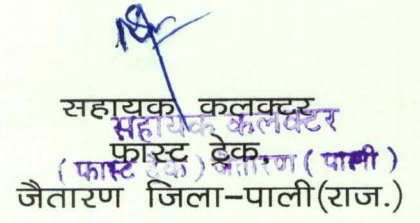 सहायक कलक्टर
सहायक कलक्टर
फास्ट ट्रेक,
( फास्ट ट्रेक ) जैतारण ( पाली )
जैतारण जिला-पाली(राज.)